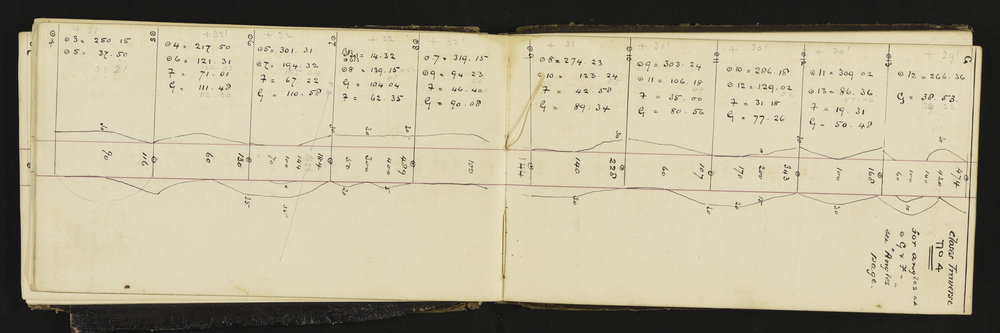 + 31'
⊙3 = 250.15
⊙5 = 37.50
⊙4 = 217.50
⊙6 = 121.31
7 = 71.01
G = 111.48
+ 32
⊙5 = 301.31
⊙7 = 194.32
7 = 67.22
G = 110.58
+ 32
14.32
⊙8 = 139.15
G = 104.04
7 = 62.35
+ 32
7 = 319.15
⊙9 = 94.23
7 = 46.40
G = 90.08
+ 31
⊙8 = 274.23
⊙10 = 123.24
7 = 42.58
G = 89.34
+ 31'
⊙9 = 303.24
⊙11 = 106.18
7 = 35.00
G = 80.56
+ 30'
⊙10 = 286.18
⊙12 = 129.02
7 = 31.18
G = 77.26
+ 30'
⊙11 = 309.02
⊙13 = 86.36
7 = 19.31
G = 50.48
+ 29'
⊙12 = 266.36
G = 38.53
⊙4
⊙5
⊙6
⊙7
⊙8
⊙9
⊙10
⊙11
⊙12
⊙13
G
90
116
60
130
70
100
144
184
50
200
400
489
100
144
140
228
60
107
170
200
343
100
168
60
100
160
430
474
35
20
5
20
20
30
10
closes Traverse
No 4
for angles at
⊙ G & 7
see "Angles"
page.